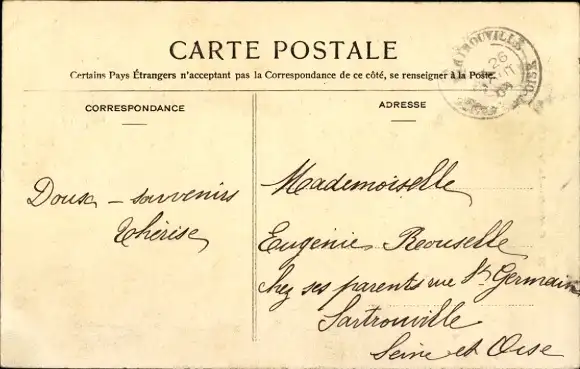 CARTE POSTALE
Certains Pays Étrangers n'acceptant pas la Correspondance de ce côté, se renseigner à la Poste.
CORRESPONDANCE
ADRESSE
SARTROUVILLE
26
Doux – souvenirs
Thérèse
Mademoiselle
Eugénie Rousselle
chez ses parents rue St Germain
Sartrouville
Seine et Oise